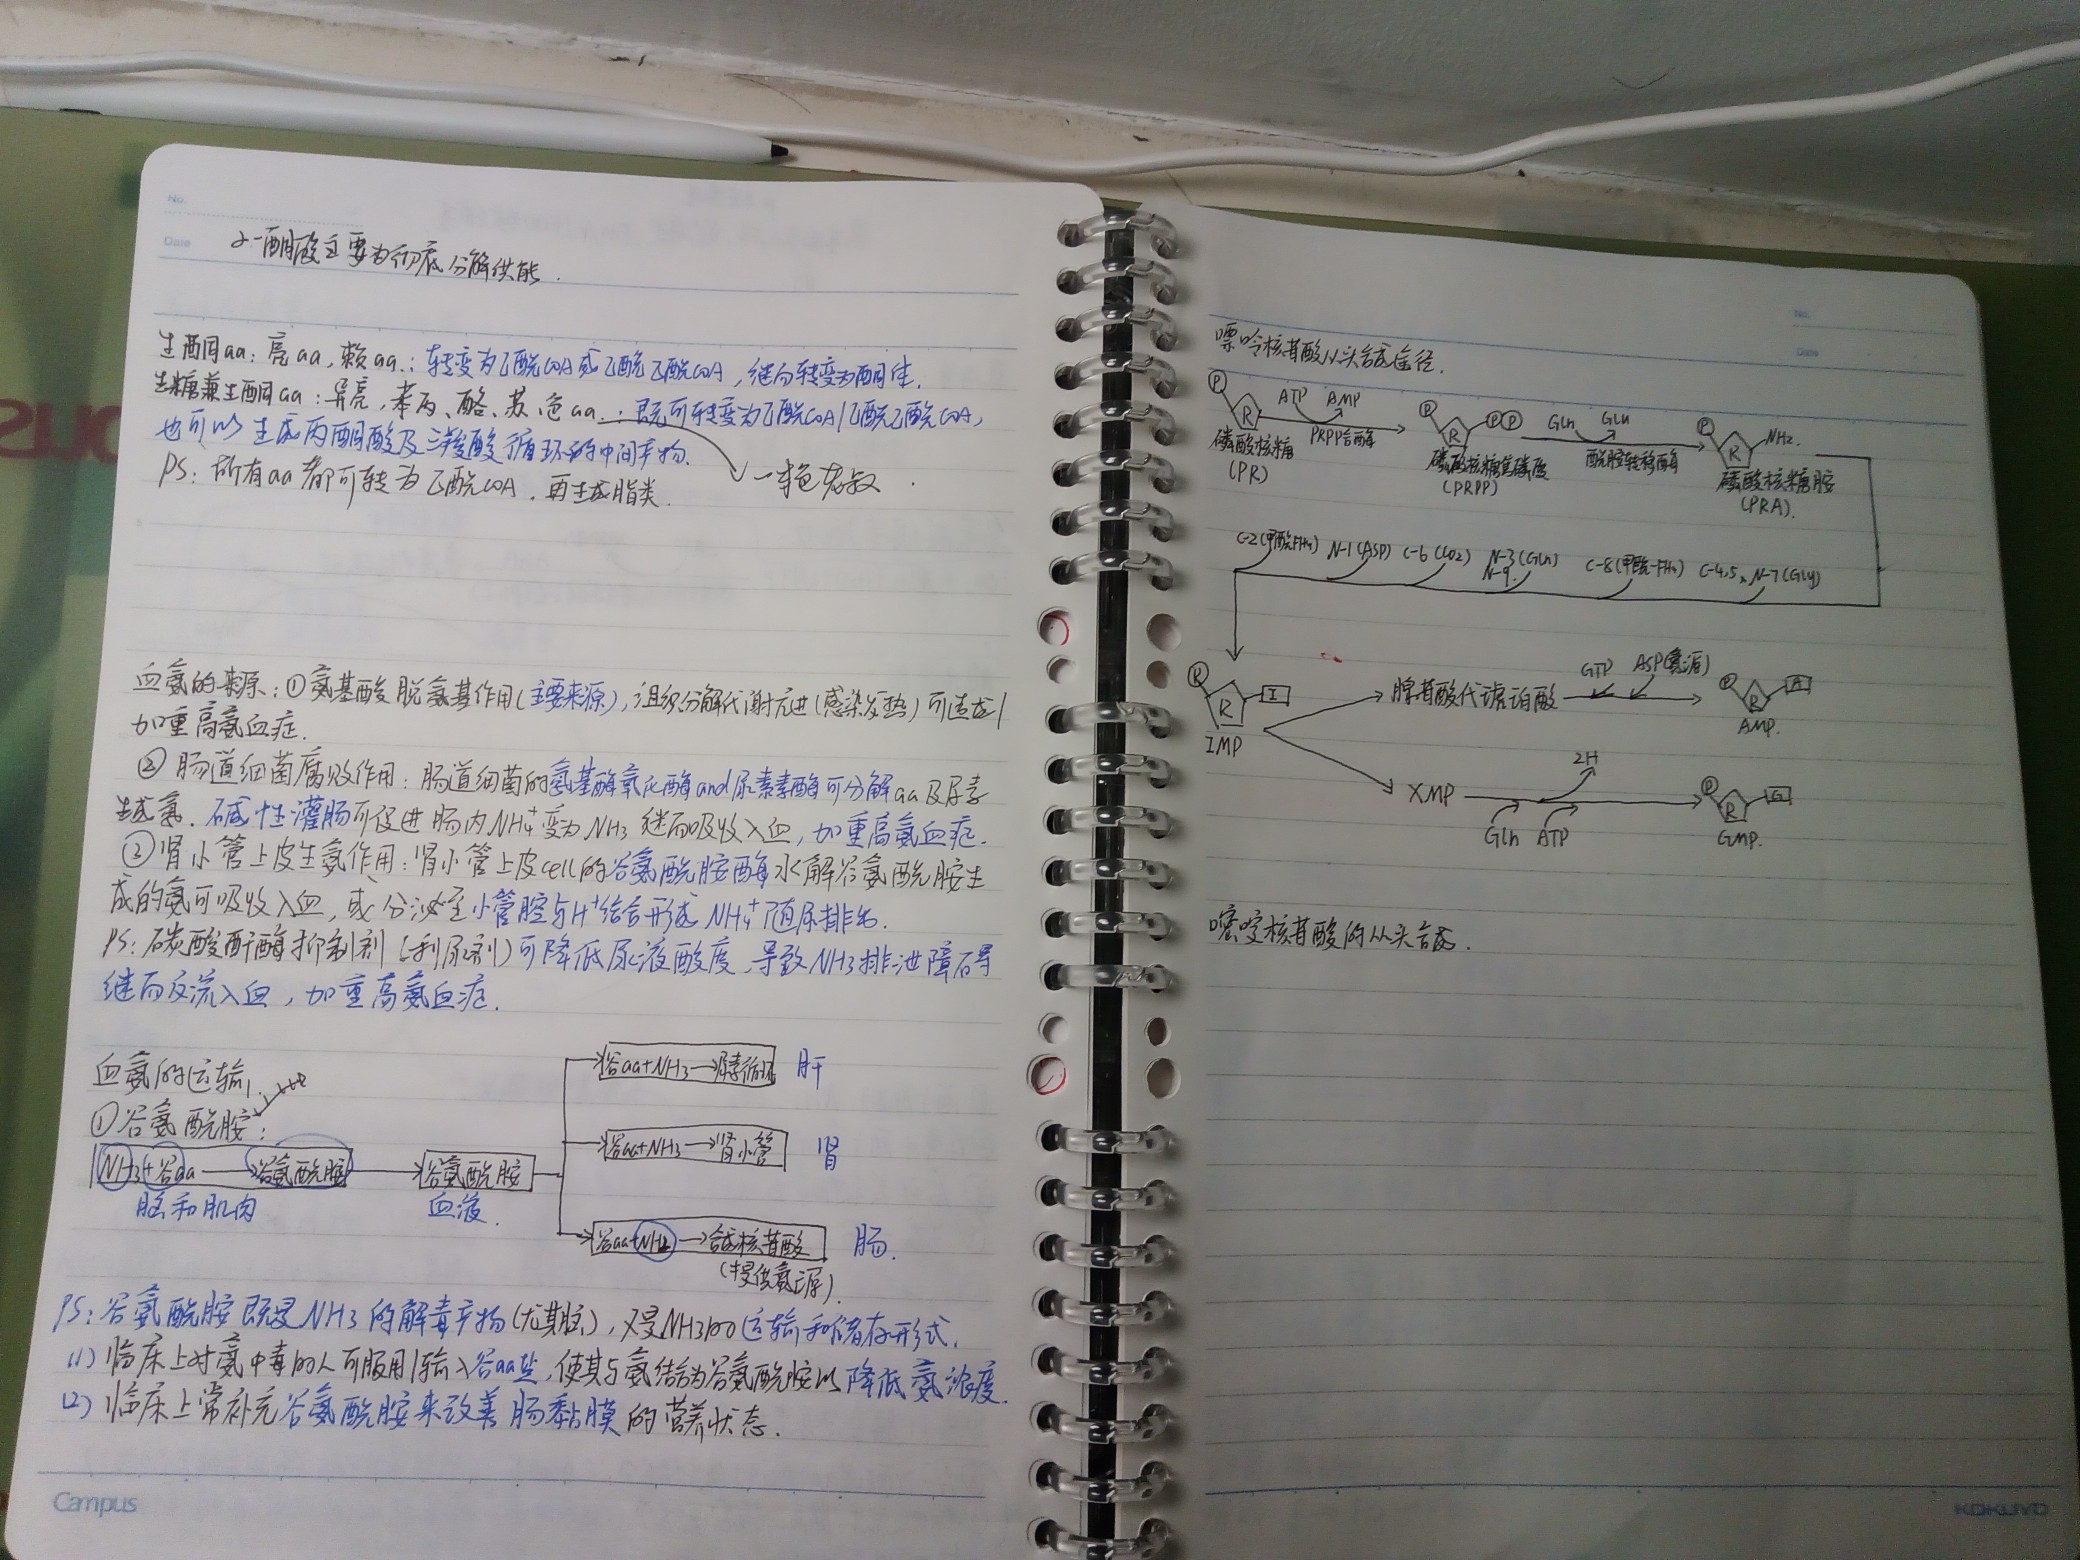 No.
Date
α-酮酸主要为彻底分解供能.
生酮aa: 亮aa, 赖aa.: 转变为乙酰COA或乙酰乙酰COA, 继而转变为酮体.
生糖兼生酮aa: 异亮, 苯丙、酪、苏、色aa.: 既可转变为乙酰COA/乙酰乙酰COA,
也可以生成丙酮酸及三羧酸循环的中间产物.
PS: 所有aa都可转为乙酰COA, 再生成脂类. 一本色老叔
血氨的来源: ①氨基酸脱氨基作用(主要来源), 组织分解代谢亢进(感染发热)可造成/
加重高氨血症.
②肠道细菌腐败作用: 肠道细菌的氨基酸氧化酶and尿素酶可分解aa及尿素
生成氨. 碱性灌肠可促进肠内NH4+变为NH3 继而吸收入血, 加重高氨血症.
③肾小管上皮生氨作用: 肾小管上皮cell的谷氨酰胺酶水解谷氨酰胺生
成的氨可吸收入血, 或分泌至小管腔与H+结合形成NH4+随尿排出.
PS: 碳酸酐酶抑制剂(利尿剂)可降低尿液酸度, 导致NH3排泄障碍
继而反流入血, 加重高氨血症.
血氨的运输
①谷氨酰胺:
谷aa+NH3→尿素循环 肝
谷aa+NH3→肾小管 肾
NH3+谷aa→谷氨酰胺 谷氨酰胺
脑和肌肉 血液.
谷aa+NH3→合成核苷酸 肠.
(提供氮源)
PS: 谷氨酰胺既是NH3的解毒产物(尤其脑), 又是NH3的运输和储存形式.
(1) 临床上对氨中毒的人可服用/输入谷aa盐, 使其与氨结合为谷氨酰胺以降低氨浓度.
(2) 临床上常补充谷氨酰胺来改善肠黏膜的营养状态.
Campus
No.
Date
嘌呤核苷酸从头合成途径.
P R ATP AMP P R P P Gln Glu P R NH2.
磷酸核糖 PRPP合酶 磷酸核糖焦磷酸 酰胺转移酶 磷酸核糖胺
(PR) (PRPP) (PRA).
C-2(甲酰FH4) N-1(ASP) C-6(CO2) N-3(Gln) C-8(甲酰-FH4) C-4,5、N-7(Gly)
N-9.
P R I 腺苷酸代琥珀酸 GTP ASP(氮源) P R A
IMP AMP.
2H
XMP P R G
Gln ATP GMP.
嘧啶核苷酸的从头合成.
KOKUYO